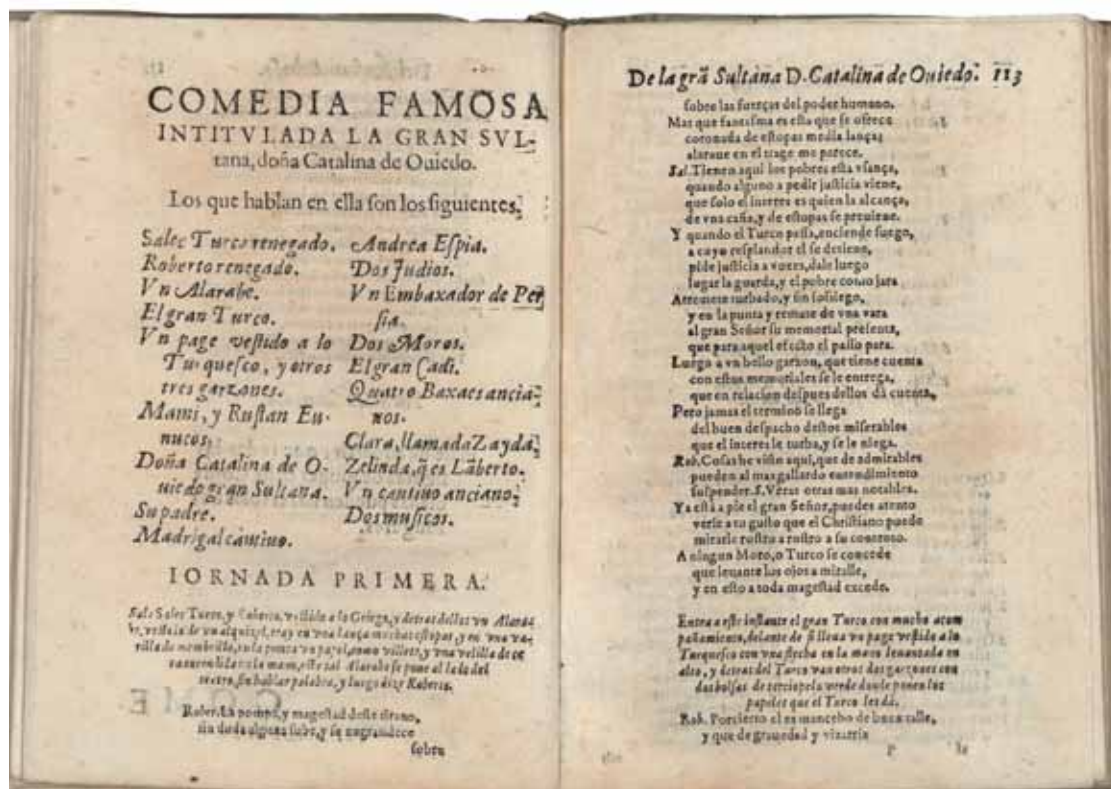 COMEDIA FAMOSA
INTITVLADA LA GRAN SVL-
tana, doña Catalina de Ouiedo.
Los que hablan en ella son los siguientes.
Salec Turco renegado.
Roberto renegado.
Vn Alarabe.
El gran Turco.
Vn page vestido a lo
Turquesco, y otros
tres garzones.
Mami, y Rustan Eu-
nucos.
Doña Catalina de O-
uiedo gran Sultana.
Su padre.
Madrigal cautiuo.
Andrea Espia.
Dos Judios.
Vn Embaxador de Per
sia.
Dos Moros.
El gran Cadi.
Quatro Baxaes ancia-
nos.
Clara, llamada Zayda.
Zelinda, q̃ es Lãberto.
Vn cautiuo anciano.
Dos musicos.
IORNADA PRIMERA.
Sale Salec Turco, y Roberto, vestido a lo Griego, y detras dellos vn Alara-
be, vestido de vn alquizel, trae en vna lança muchas estopas, y en vna va-
rilla de membrillo, en la punta vn papel, como villete, y vna velilla de ce
ra encendida en la mano, este tal Alarabe se pone al lado del
teatro, sin hablar palabra, y luego dize Roberto.
Rober. La pompa, y magestad deste tirano,
sin duda alguna sube, y se engrandece
sobre
De la grã Sultana D. Catalina de Ouiedo. 113
sobre las fuerças del poder humano.
Mas que fantasma es esta que se ofrece
coronada de estopas media lança;
alaraue en el trage me parece.
Sal. Tienen aqui los pobres esta vsança,
quando alguno a pedir justicia viene,
que solo el interes es quien la alcança,
de vna caña, y de estopas se preuiene.
Y quando el Turco passa, enciende fuego,
a cuyo resplandor el se detiene,
pide justicia a vozes, dale luego
lugar la guarda, y el pobre como jara
Arremete turbado, y sin sossiego,
y en la punta y remate de vna vara
al gran Señor su memorial presenta,
que para aquel efecto el passo para.
Luego a vn bello garzon, que tiene cuenta
con estos memoriales se le entrega,
que en relacion despues dellos dà cuenta,
Pero jamas el termino se llega
del buen despacho destos miserables
que el interes le turba, y se le niega.
Rob. Cosas he visto aqui, que de admirables
pueden al mas gallardo entendimiento
suspender. S. Veras otras mas notables.
Ya està a pie el gran Señor, puedes atento
verle a tu gusto que el Christiano puede
mirarle rostro a rostro a su contento.
A ningun Moro, o Turco se concede
que leuante los ojos a miralle,
y en esto a toda magestad excede.
Entra a este instante el gran Turco con mucho acom
pañamiento, delante de si lleua vn page vestido a lo
Turquesco con vna flecha en la mano leuantada en
alto, y detras del Turco van otros dos garçones con
dos bolsas de terciopelo verde donde ponen los
papeles que el Turco les dà.
Rob. Porcierto el es mancebo de buen talle,
y que de grauedad y vizarria
P